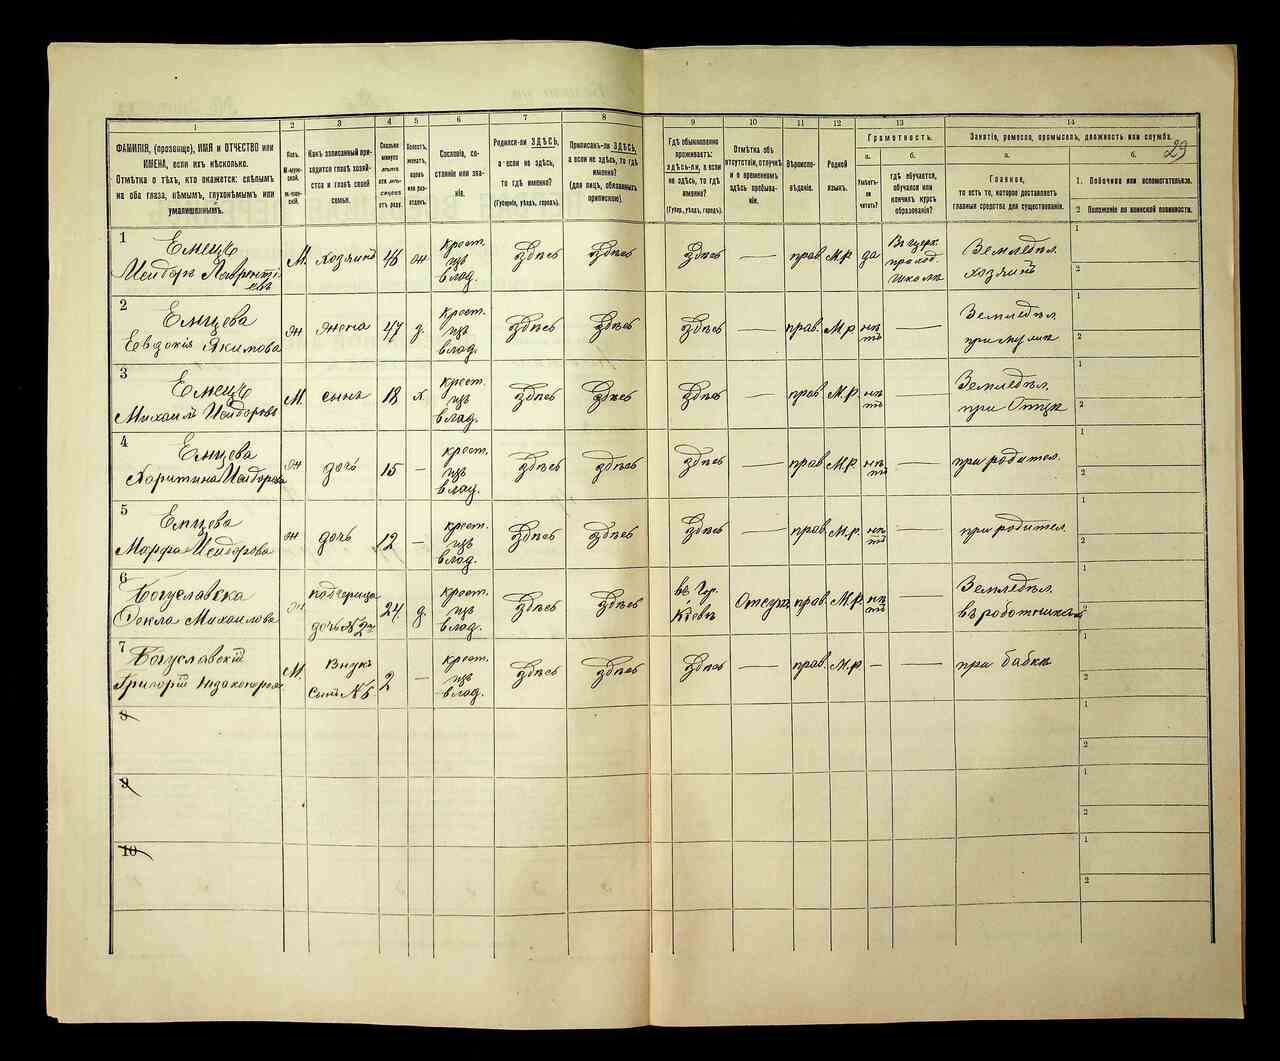 29
1
2
3
4
5
6
7
8
9
10
11
12
13
14
ФАМИЛІЯ, (прозвище), ИМЯ и ОТЧЕСТВО или
ИМЕНА, если ихъ нѣсколько.
Отмѣтка о тѣхъ, кто окажется: слѣпымъ
на оба глаза, нѣмымъ, глухонѣмымъ или
умалишеннымъ.
Полъ.
М-муж-
ской.
Ж-жен-
скій.
Какъ записанный при-
ходится главѣ хозяй-
ства и главѣ своей
семьи.
Сколько
минуло
лѣтъ
или мѣ-
сяцевъ
отъ роду.
Холостъ,
женатъ,
вдовъ
или раз-
веденъ.
Сословіе, со-
стояніе или зва-
ніе.
Родился-ли ЗДѢСЬ,
а если не здѣсь,
то гдѣ именно?
(Губернія, уѣздъ, городъ).
Приписанъ-ли ЗДѢСЬ,
а если не здѣсь, то гдѣ
именно?
(для лицъ, обязанныхъ
припискою).
Гдѣ обыкновенно
проживаетъ:
ЗДѢСЬ-ли, а если
не здѣсь, то гдѣ
именно?
(Губер., уѣздъ, городъ).
Отмѣтка объ
отсутствіи, отлучкѣ
и о временномъ
здѣсь пребыва-
ніи.
Вѣроиспо-
вѣданіе.
Родной
языкъ.
Грамотность.
а.
Умѣетъ-
ли
читать?
б.
гдѣ обучается,
обучался или
кончилъ курсъ
образованія?
Занятіе, ремесло, промыселъ, должность или служба.
а.
Главное,
то есть то, которое доставляетъ
главныя средства для существованія.
б.
1. Побочное или вспомогательное.
2 Положеніе по воинской повинности.
1
Емецъ
Исидоръ Лаврентіевъ
М.
хозяинъ
46
жн
крест.
изъ
влад.
здѣсь
здѣсь
здѣсь
—
прав
М.р
да
Въ церк.
приход.
школѣ
Земледѣл.
хозяинъ
1
2
2
Емцева
Евдокія Якимова
жн
жена
47
з.
крест.
изъ
влад.
здѣсь
здѣсь
здѣсь
—
прав.
М.р.
нѣтъ
—
Земледѣл.
при мужѣ
1
2
3
Емецъ
Михаилъ Исидоровъ
М.
сынъ
18
х.
крест.
изъ
влад.
здѣсь
здѣсь
здѣсь
—
прав
М.р.
нѣтъ
Земледѣл.
при Отцѣ
1
2
4
Емцева
Харитина Исидорова
жн
дочь
15
—
крест.
изъ
влад.
здѣсь
здѣсь
здѣсь
—
прав
М.р.
нѣтъ
—
при родител.
1
2
5
Емцева
Марфа Исидорова
жн
дочь
12
—
крест.
изъ
влад.
здѣсь
здѣсь
здѣсь
—
прав.
М.р.
нѣтъ
—
при родител.
1
2
6
Богуславска
Фекла Михаилова
жн
падчерица
дочь №2й
24
з.
крест.
изъ
влад.
здѣсь
здѣсь
въ Гор.
Кіевѣ
Отсут.
прав.
М.р.
нѣтъ
—
Земледѣл.
въ работникахъ
1
2
7
Богуславскій
Григорій
М.
Внукъ
сынъ №6
2
—
крест.
изъ
влад.
здѣсь
здѣсь
здѣсь
—
прав.
М.р.
—
—
при бабкѣ
1
2
8
1
2
9
1
2
10
1
2